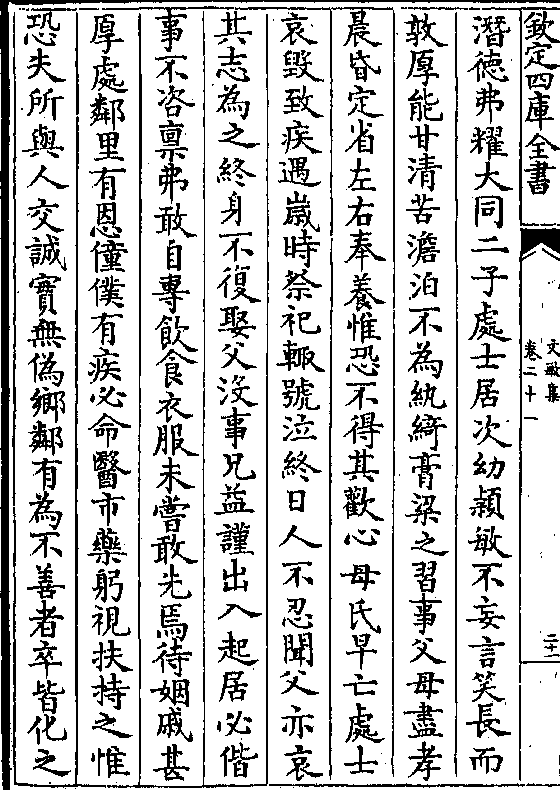 欽定四庫全書
文敏集
卷二十一
二十一
潛德弗耀大同二子處士居次幼穎敏不妄言笑長而
敦厚能甘清苦澹泊不為紈綺膏粱之習事父母盡孝
晨昏定省左右奉養惟恐不得其歡心母氏早亡處士
哀毀致疾遇嵗時祭祀輙號泣終日人不忍聞父亦哀
其志為之終身不復娶父沒事兄益謹出入起居必偕
事不咨禀弗敢自專飲食衣服未嘗敢先焉待姻戚甚
厚處鄰里有恩僮僕有疾必命醫市藥躬視扶持之惟
恐失所與人交誠實無偽鄉鄰有為不善者卒皆化之